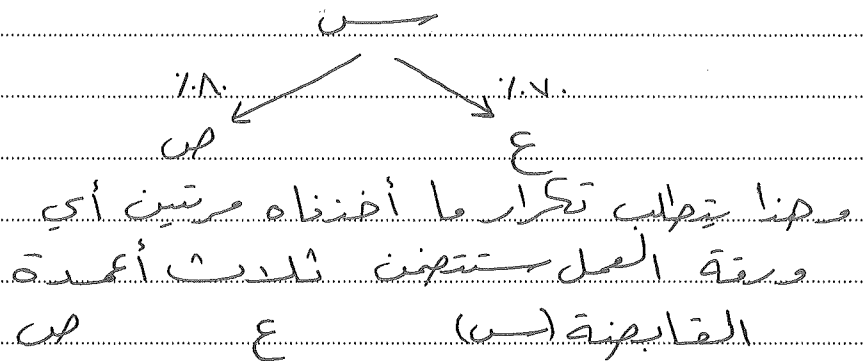 س
٪٨٠ ٪٧٠
ص ع
وهنا يتطلب تكرار ما أخذناه مرتين أي
ورقة العمل ستتضمن ثلاث أعمدة
القابضة (س) ع ص